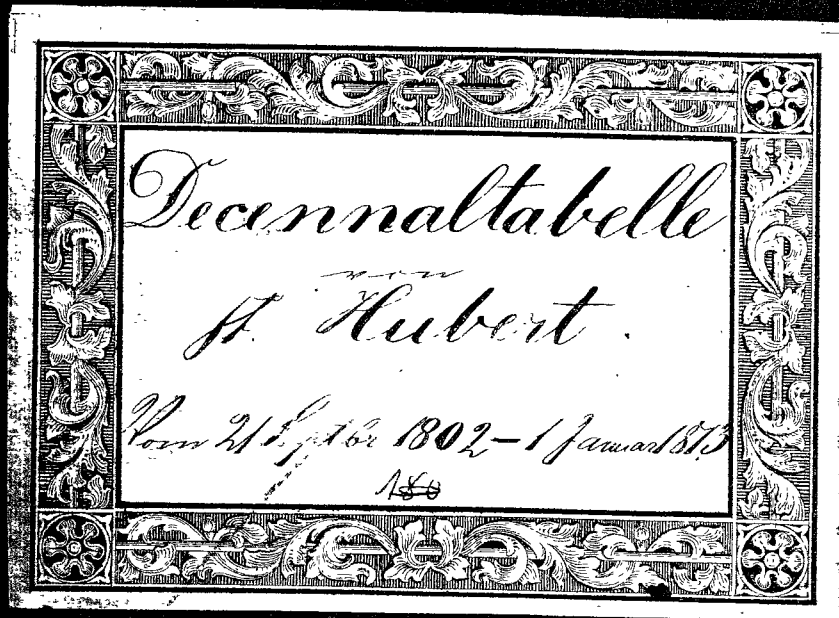 Decennaltabelle
von
St. Hubert.
Vom 21 Septbr 1802 – 1 Januar 1813